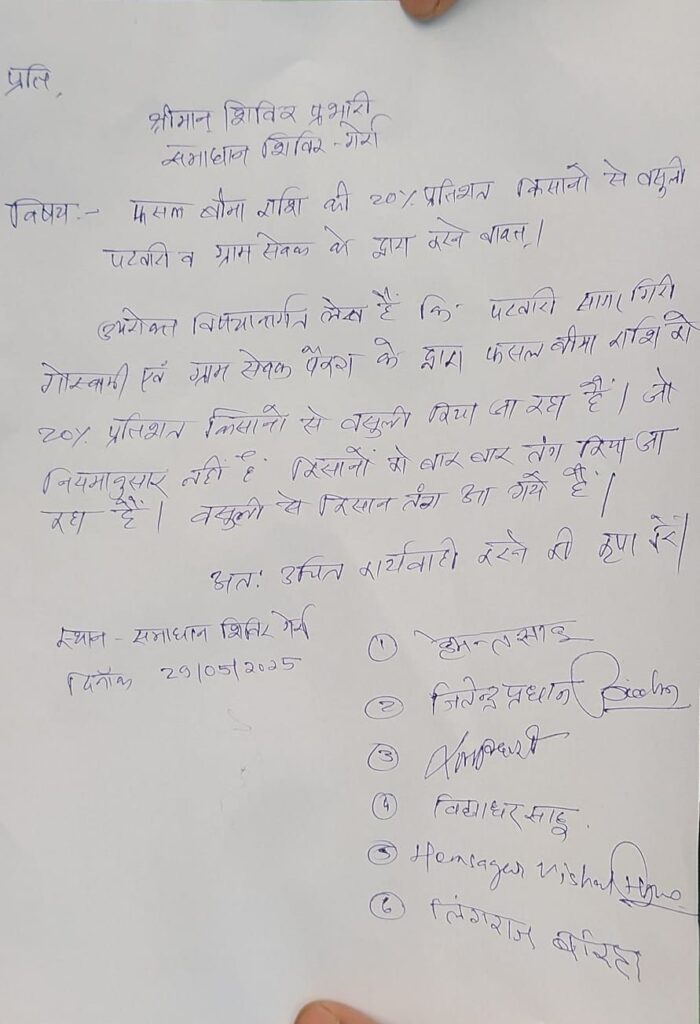 प्रति,
श्रीमान् शिविर प्रभारी
समाधान शिविर - गेर्रा
विषय :- फसल बीमा राशि की 20% प्रतिशत किसानों से वसुली
पटवारी व ग्राम सेवक के द्वारा करने बाबत्।
उपरोक्त विषयान्तर्गत लेख है कि पटवारी सागर गिरी
गोस्वामी एवं ग्राम सेवक पैंकरा के द्वारा फसल बीमा राशि को
20% प्रतिशत किसानों से वसुली किया जा रहा है। जो
नियमानुसार नहीं है किसानों को बार बार तंग किया जा
रहा है। वसुली से किसान तंग आ गये हैं।
अतः उचित कार्यवाही करने की कृपा करें।
स्थान - समाधान शिविर गेर्रा
दिनाँक 29/05/2025
① हेमन्त साहू
② जितेन्द्र प्रधान
③
④ विद्याधर साहू.
⑤ Hemsagar Vishal
⑥ लिंगराज बारिहा